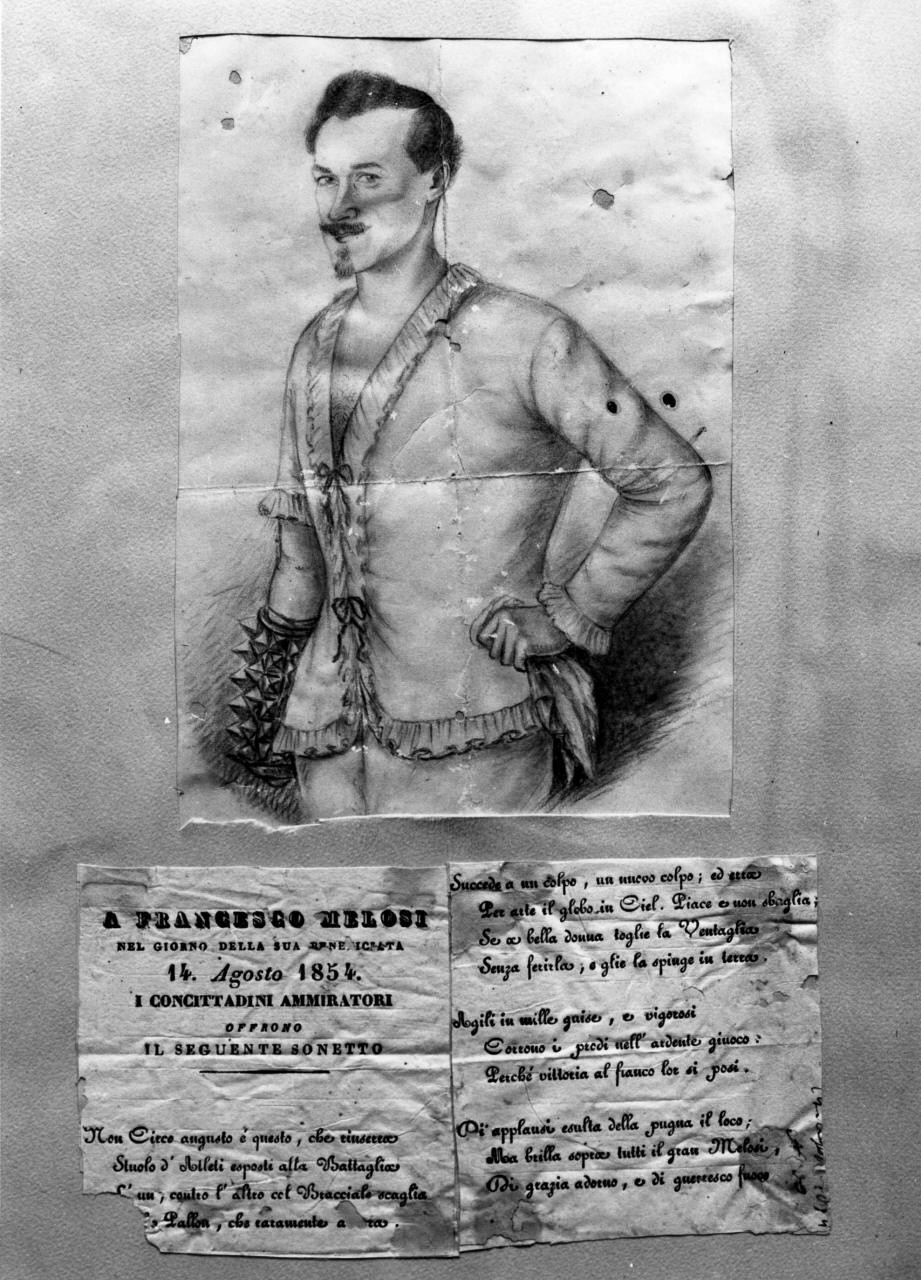 A FRANCESCO MELOSI
NEL GIORNO DELLA SUA
14. Agosto 1854.
I CONCITTADINI AMMIRATORI
OFFRONO
IL SEGUENTE SONETTO
Non Circo angusto é questo, che rinserra
Stuolo d' Atleti esposti alla Battaglia
L' un, contro l' altro col Bracciale scaglia
Pallon, che raramente a
Succede a un colpo, un nuovo colpo; ed erra
Per arte il globo in Ciel. Piace e non sbaglia;
Se a bella donna toglie la Ventaglia
Senza ferirla; e glie la spinge in terra.
Agili in mille guise, e vigorosi
Corrono i prodi nell' ardente giuoco:
Perché vittoria al fianco lor si posi.
Di applausi esulta della pugna il loco;
Ma brilla sopra tutti il gran Melosi,
Di grazia adorno, e di guerresco fuoco